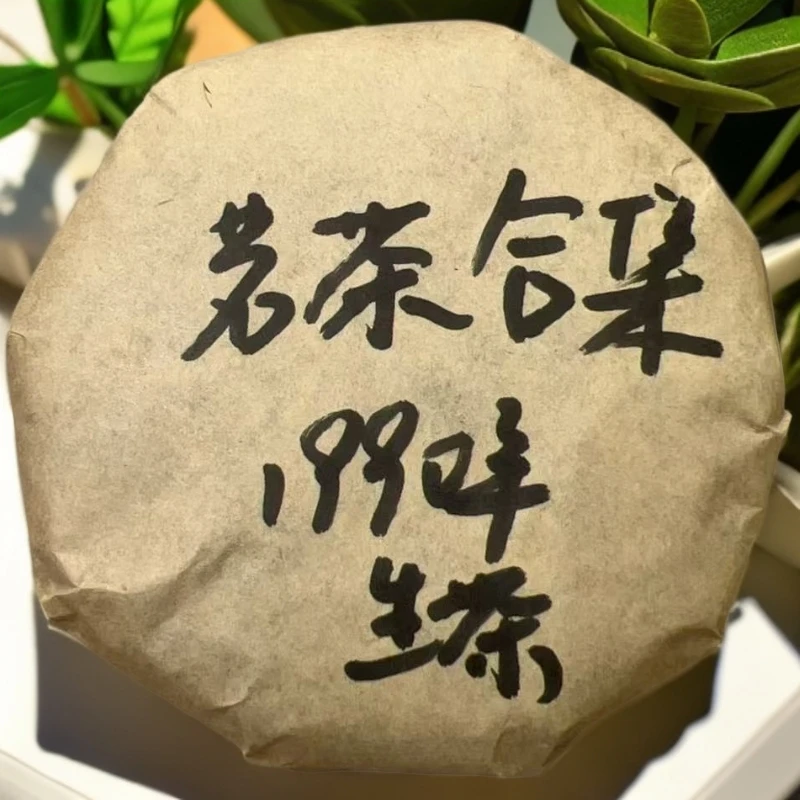 茗茶合集
1990年
生茶